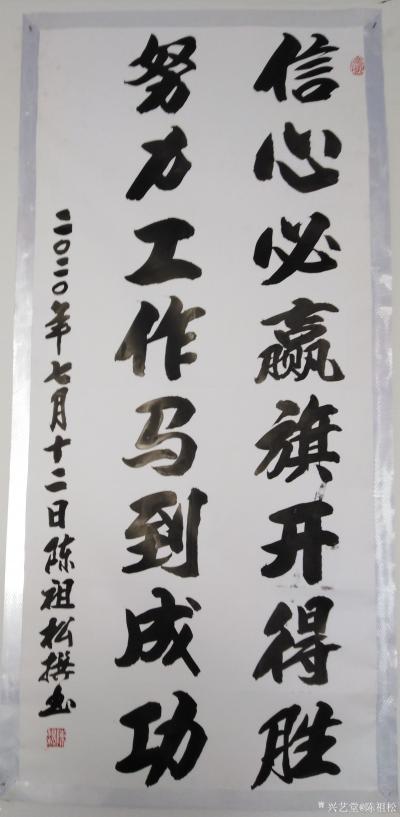 信心必赢旗开得胜
努力工作马到成功
二〇二〇年七月十二日陈祖松撰书
兴艺堂@陈祖松